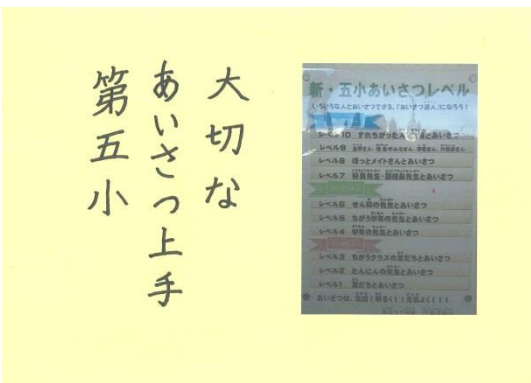 大切な
あいさつ上手
第五小
新・五小あいさつレベル
いろいろな人とあいさつできる、「あいさつ達人」になろう！
レベル10 すれちがった
とあいさつ
レベル9
レベル8 ほっとメイトさんとあいさつ
レベル7 校長先生・副校長先生とあいさつ
レベル6 せん科の先生とあいさつ
レベル5 ちがう学年の先生とあいさつ
レベル4 学年の先生とあいさつ
レベル3 ちがうクラスの友だちとあいさつ
レベル2 たんにんの先生とあいさつ
レベル1 友だちとあいさつ
あいさつは、